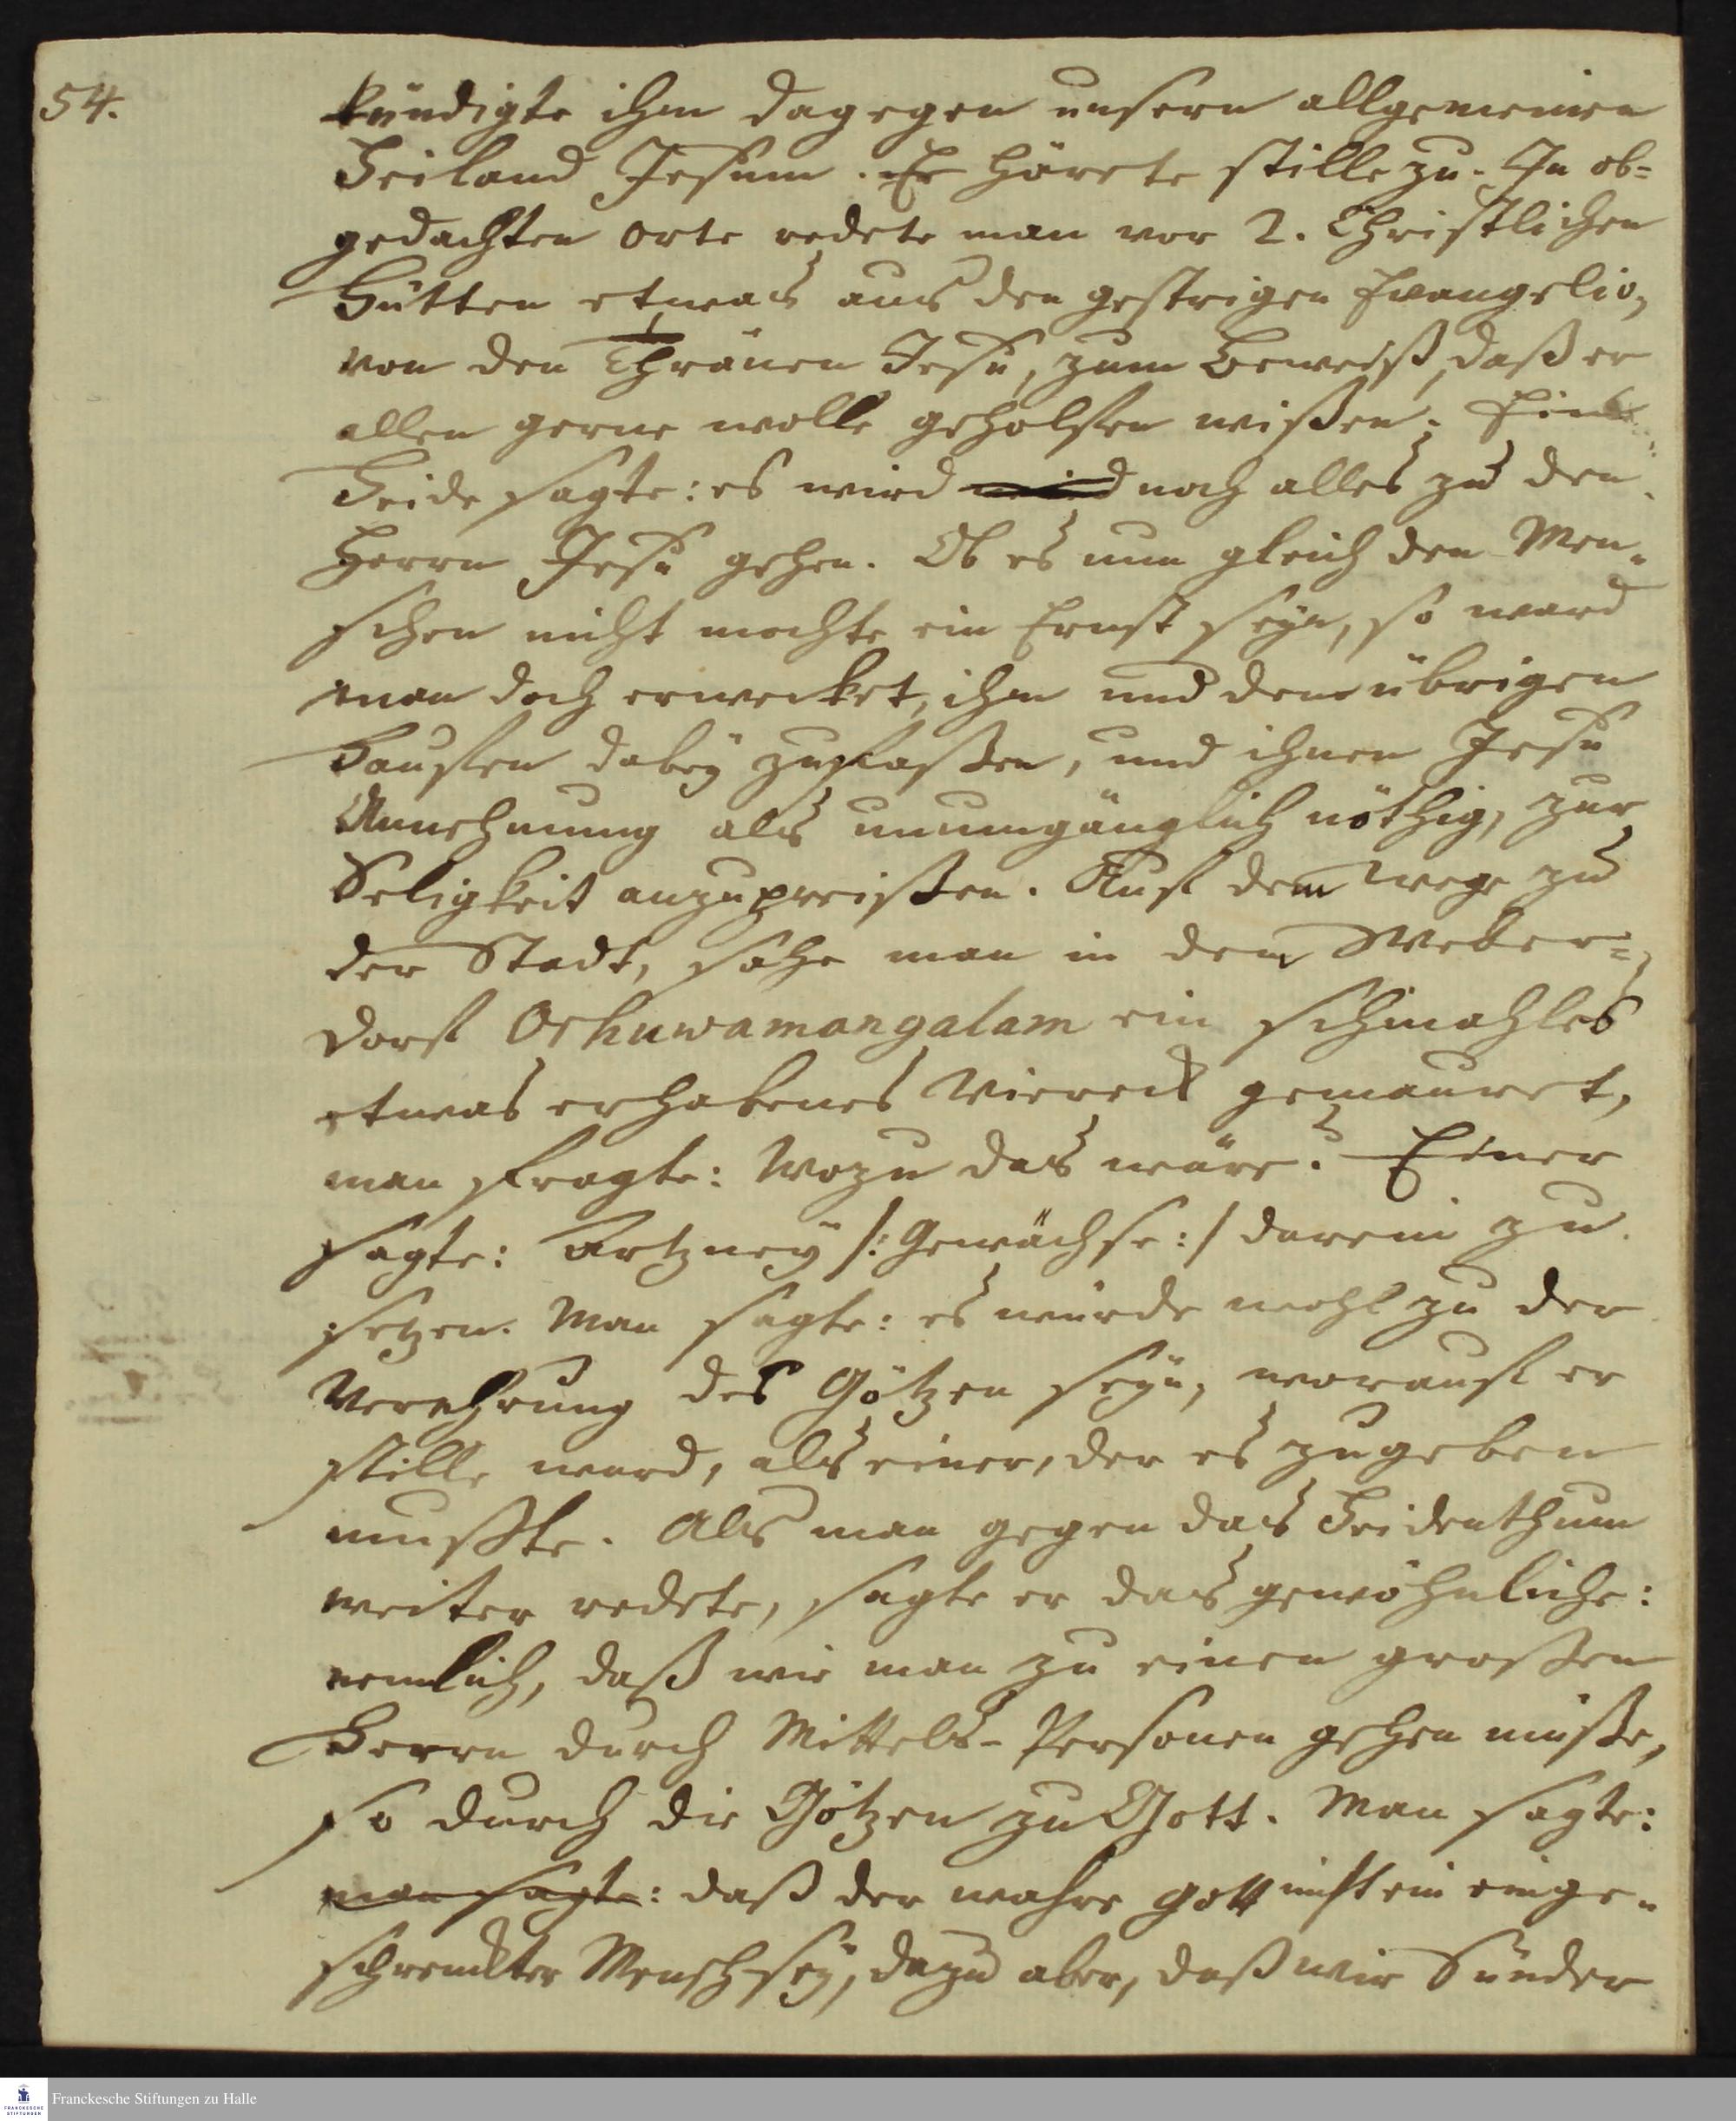 54.
kündigte ihm dagegen unsern allgemeinen
Heiland Jesum. Er hörete stille zu. In ob-
gedachten Orte redete man vor 2. Christlichen
Hütten etwas aus den gestrigen Evangelio,
von den Thränen Jesu, zum Beweiß, daß er
allen gerne wolle geholfen wißen. Ein
Heide sagte: es wird wird noch alles zu den
Herrn Jesu gehen. Ob es nun gleich den Men-
schen nicht mochte ein Ernst seyn, so ward
man doch erwecket, ihn und den übrigen
Haufen dabey zufaßen, und ihnen Jesu
Annehmung als unumgänglich nöthig, zur
Seligkeit anzupreißen. Auf dem Wege zu
der Stadt, sahe man in dem Weber-
dorf Oehuwamangalam ein schmahles
etwas erhabenes Viereck gemauret,
man fragte: Wozu das wäre? Einer
sagte: Artzney /: Gewächse :/ darein zu
setzen. Man sagte: es würde wohl zu der
Verehrung des Götzen seyn, worauf er
stille ward, als einer, der es zugeben
mußte. Als man gegen das Heidenthum
weiter redete, sagte er das gewöhnliche:
nemlich, daß wie man zu einen großen
Herrn durch Mittels-Personen gehen müße,
so durch die Götzen zu Gott. Man sagte:
man sagte: daß der wahre Gott nicht ein einge-
schrenckter Mensch sey, dazu aber, daß wir Sünder
Franckesche Stiftungen zu Halle
FRANCKESCHE
STIFTUNGEN